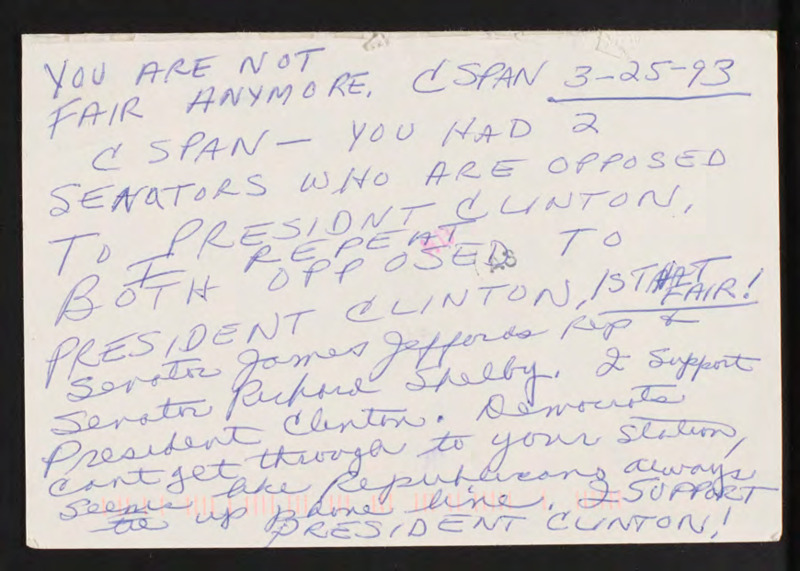 YOU ARE NOT
FAIR ANYMORE. C SPAN 3-25-93
C SPAN — YOU HAD 2
SENATORS WHO ARE OPPOSED
TO PRESIDNT CLINTON,
I REPEAT
BOTH OPPOSED TO
PRESIDENT CLINTON, IS THAT
FAIR!
Senator James Jeffords Rep &
Senator Richard Shelby. I support
President Clinton. Democrats
cant get through to your station,
seems like Republicans always
tie up phone line. I SUPPORT
PRESIDENT CLINTON!